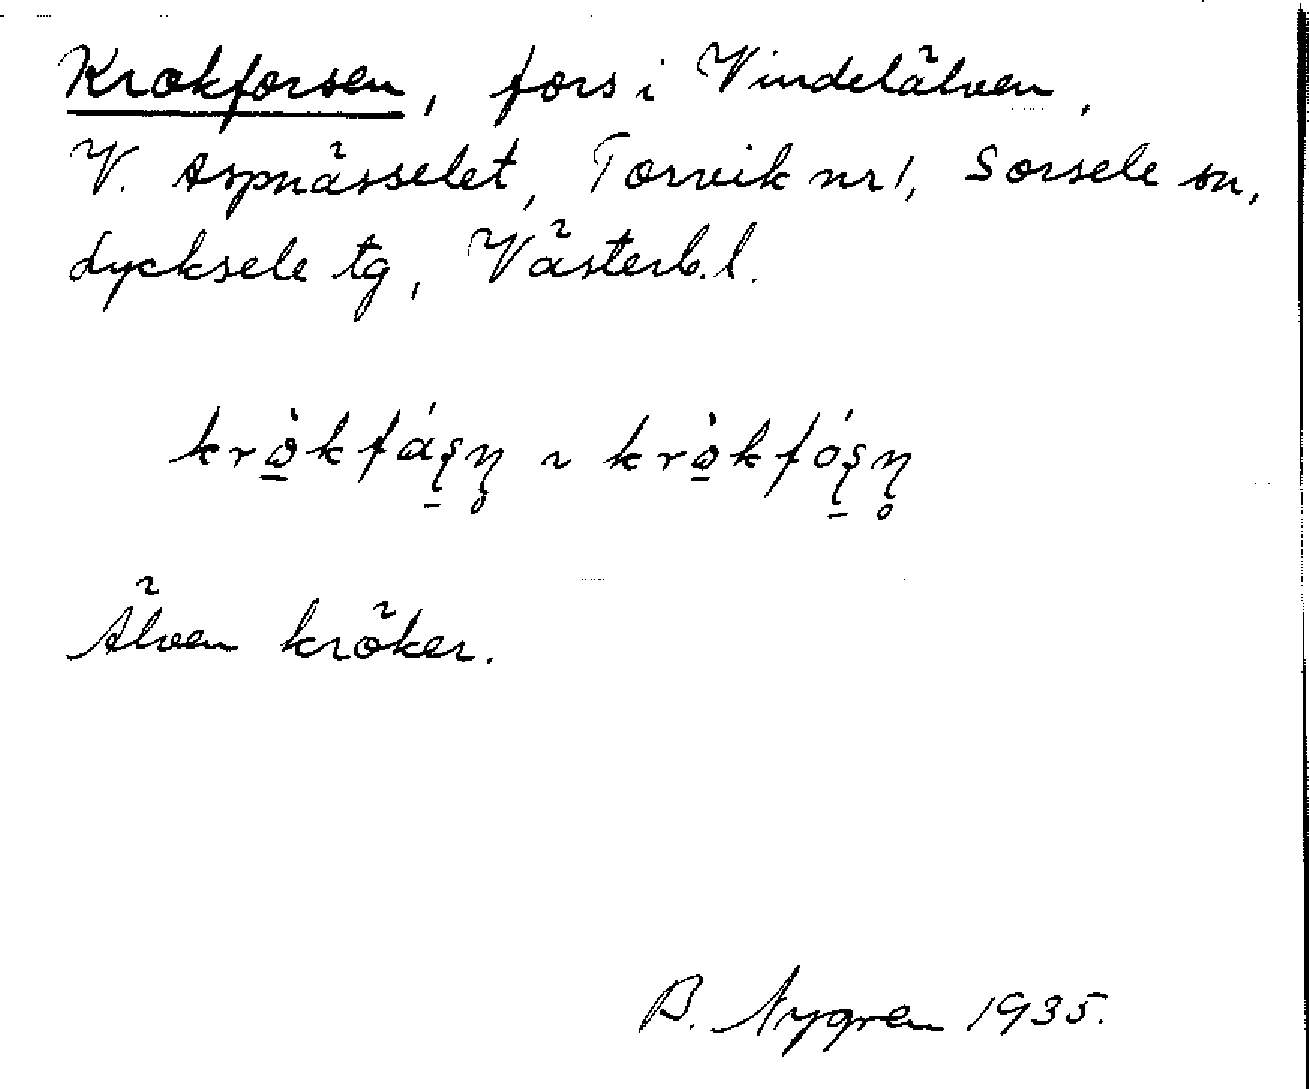 Krokforsen, fors i Vindelälven,
V. Aspnässelet, Torvik nr 1, Sorsele sn,
Lycksele tg, Västerb. l.
krò̲kfáʂ̲ņ̥ ~ krò̲kfóʂ̲ņ̥
Älven kröker.
B. Nygren 1935.